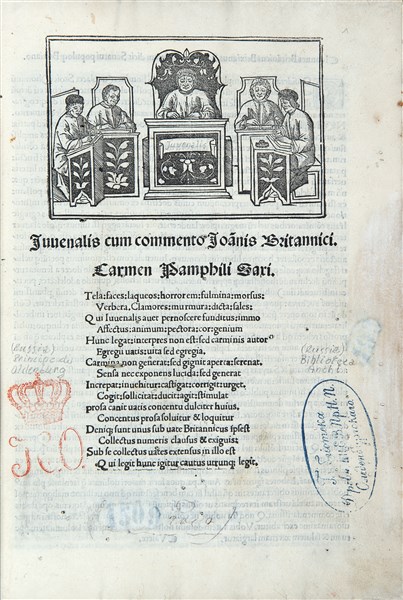 Juvenalis
Juvenalis cum commento Joãnis Britannici.
Carmen Pamphili Saxi.
Tela: faces: laqueos: horrorem: fulmina: morsus:
Verbera, Clamores: murmura: dicta: sales:
Qui Iuuenalis auet pernoscere funditus: immo
Affectus: animum: pectora: cor: genium
Hunc legat: interpres non est: sed carminis autor
Egregii uatis: uita sed egregia.
Carmina non generat: sed gignit aperta: serenat.
Sensa nec exponens lucida: sed generat
Increpat: inuehitur: castigat: corrigit: urget.
Cogit: sollicitat: ducit: agit: stimulat
prosa canit uatis concentu dulcter huius,
Concentus prosa soluitur & loquitur
Deniq; sunt unus sub uate Britannicus ipse
Collectus numeris clausus & exiguis;
Sub se collectus uates extensus in illo est
Qui legit hunc igitur cautus utrunq; legit.
(Russia)
(Russia)
Biblioteca
Библиотека